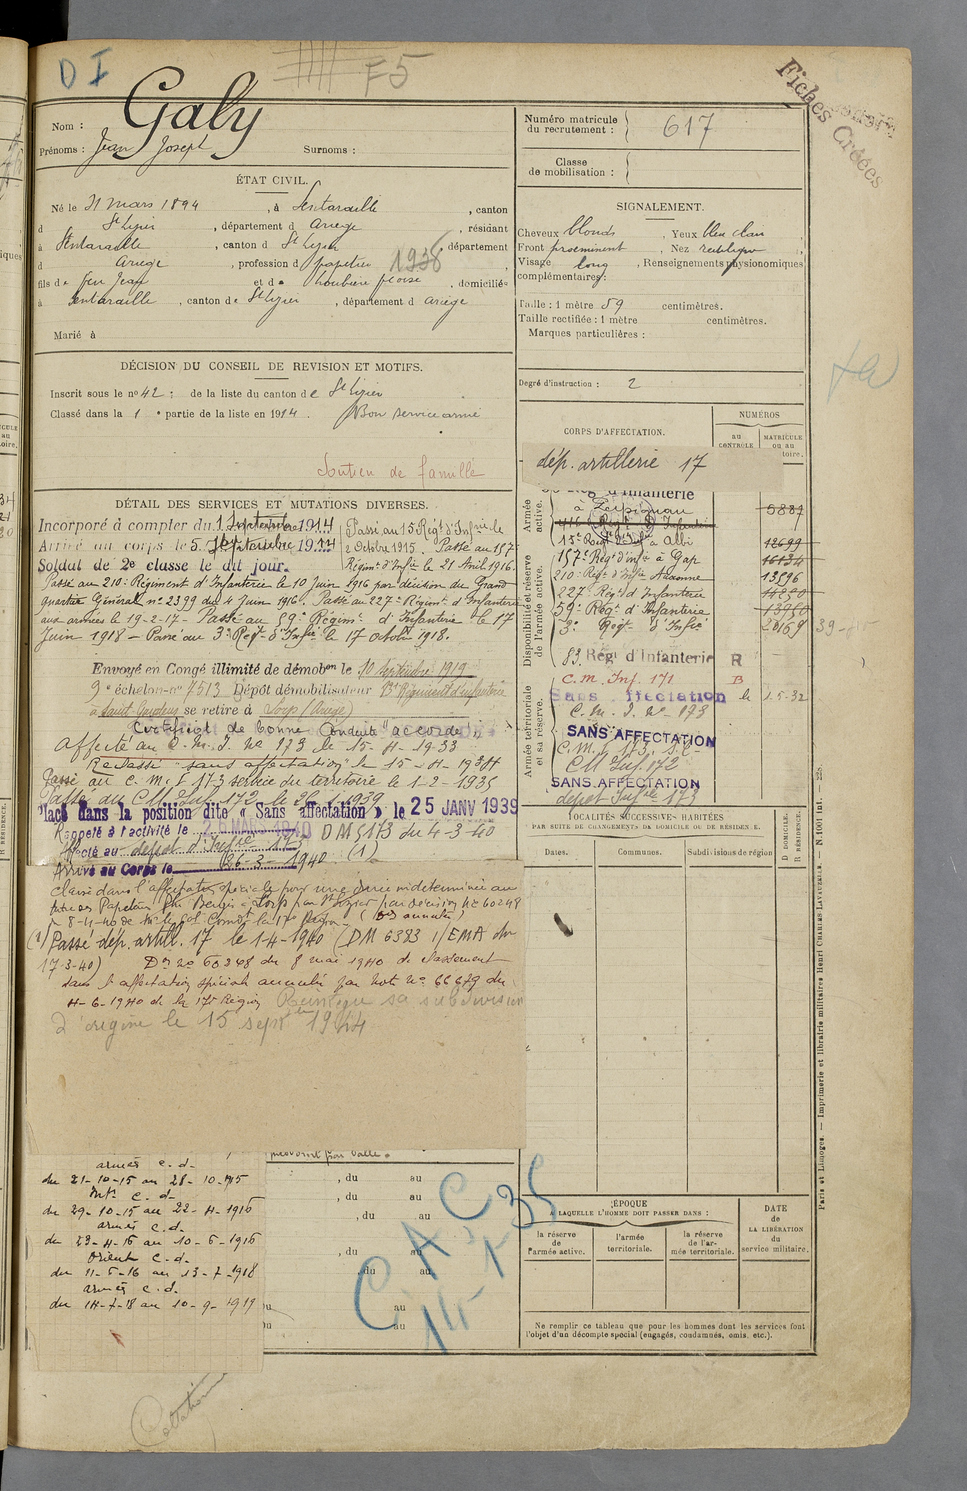 D I
F5
Fiches
Créées
Nom : Galy
Prénoms : Jean Joseph Surnoms :
Numéro matricule
du recrutement : 617
Classe
de mobilisation :
ÉTAT CIVIL.
Né le 21 mars 1894, à Sentaraille, canton
d St Lizier, département d Ariège, résidant
à Sentaraille, canton d St Lizier, département
d Ariège, profession d papetier 1938
fils de feu Jean et de Loubière, domiciliés
à Sentaraille, canton de St Lizier, département d Ariège
Marié à
SIGNALEMENT.
Cheveux blonds, Yeux bleu clair
Front proéminent, Nez rectiligne
Visage long, Renseignements physionomiques
complémentaires :
Taille : 1 mètre 59 centimètres.
Taille rectifiée : 1 mètre centimètres.
Marques particulières :
DÉCISION DU CONSEIL DE REVISION ET MOTIFS.
Inscrit sous le no 42 : de la liste du canton de St Lizier
Classé dans la 1e partie de la liste en 1914. Bon service armé
Soutien de famille
Degré d'instruction : 2
CORPS D'AFFECTATION.
NUMÉROS
AU CONTRÔLE
MATRICULE
ou au
toire.
dép. artillerie 17
Armée active.
Rég d'Infanterie
à Perpignan 5887
15e Régt d'Infie à Albi 12699
Disponibilité et réserve de l'armée active.
157e Régt d'infie à Gap 16134
210e Régt d'Infie Auxonne 13596
227e Régt d'Infanterie
59e Régt d'Infanterie
3e Régt d'Infie 39-
83 Régt d'Infanterie R
C.m. Inf. 171 B
Armée territoriale et sa réserve.
Sans affectation le 1.5.32
C.M.I. No 173
SANS AFFECTATION
C.M.I 173
CM Inf. 172
SANS AFFECTATION
depot Infie 173
DÉTAIL DES SERVICES ET MUTATIONS DIVERSES.
Incorporé à compter du 1 Septembre 1914
Arrivé au corps le 5 Septembre 1914
Soldat de 2e classe le dit jour.
Passé au 15 Régt d'Infie le
2 Octobre 1915. Passé au 157
Régimt d'Infie le 21 Avril 1916.
Passé au 210e Régiment d'Infanterie le 10 Juin 1916 par décision du Grand
quartier Général no 2399 du 4 Juin 1916. Passé au 227e Régimt d'Infanterie
aux armées le 19-2-17 - Passé au 59e Régimt d'Infanterie le 17
Juin 1918 - Passé au 3e Régt d'Infie le 17 octobre 1918.
Envoyé en Congé illimité de démobon le 10 septembre 1919
9e échelon no 7513 Dépôt démobilisateur 83e Régiment d'infanterie
à Saint Gaudens se retire à Lorp (Ariège)
Certificat de bonne Conduite "accordé"
Affecté au C.M.I. No 173 le 15-4-1933
Reclassé "sans affectation" le 15-4-1934
Passé au C.M.I 173 service du territoire le 1-2-1935
Passé au CM Inf 172 le
Placé dans la position dite « Sans affectation » le 25 JANV 1939
Rappelé à l'activité le 1940 DM 5173 du 4-3-40
Affecté au depot d'Infie 173
Arrivé au Corps le 26-3-1940 (1)
Classé dans l'affectation spéciale pour une durée indéterminée au
par décision No 60248
8-4-40 (
(1) Passé dép. artill. 17 le 1-4-1940 (DM 6383 1/EMA du
17-3-40) Don no 60248 du 8 mai 1940 de classement
dans l'affectation spéciale annulé par note no 66679 du
4-6-1940 de la 17e Région Renvoyé sa subdivision
d'origine le 15 septbre 1944
LOCALITÉS SUCCESSIVES HABITÉES
PAR SUITE DE CHANGEMENTS DE DOMICILE OU DE RÉSIDENCE.
Dates.
Communes.
Subdivisions de région
D. DOMICILE.
R. RÉSIDENCE.
armées c. d.
du 21-10-15 au 28-10-1915
Int. c. d.
du 29-10-15 au 22-4-1916
armées c.d.
du 23-4-16 au 10-6-1916
Orient c. d.
du 11-6-16 au 13-7-1918
armées c. d.
du 14-7-18 au 10-9-1919
, du au
, du au
, du au
, du au
, du au
du au
du au
CAC
14-1-35
ÉPOQUE
A LAQUELLE L'HOMME DOIT PASSER DANS :
la réserve de l'armée active.
l'armée territoriale.
la réserve de l'armée territoriale.
DATE
de
LA LIBÉRATION
du
service militaire.
Ne remplir ce tableau que pour les hommes dont les services font
l'objet d'un décompte spécial (engagés, condamnés, omis, etc.).
Paris et Limoges. — Imprimerie et librairie militaires Henri CHARLES-LAVAUZELLE. — N. 1001 int. — 228.